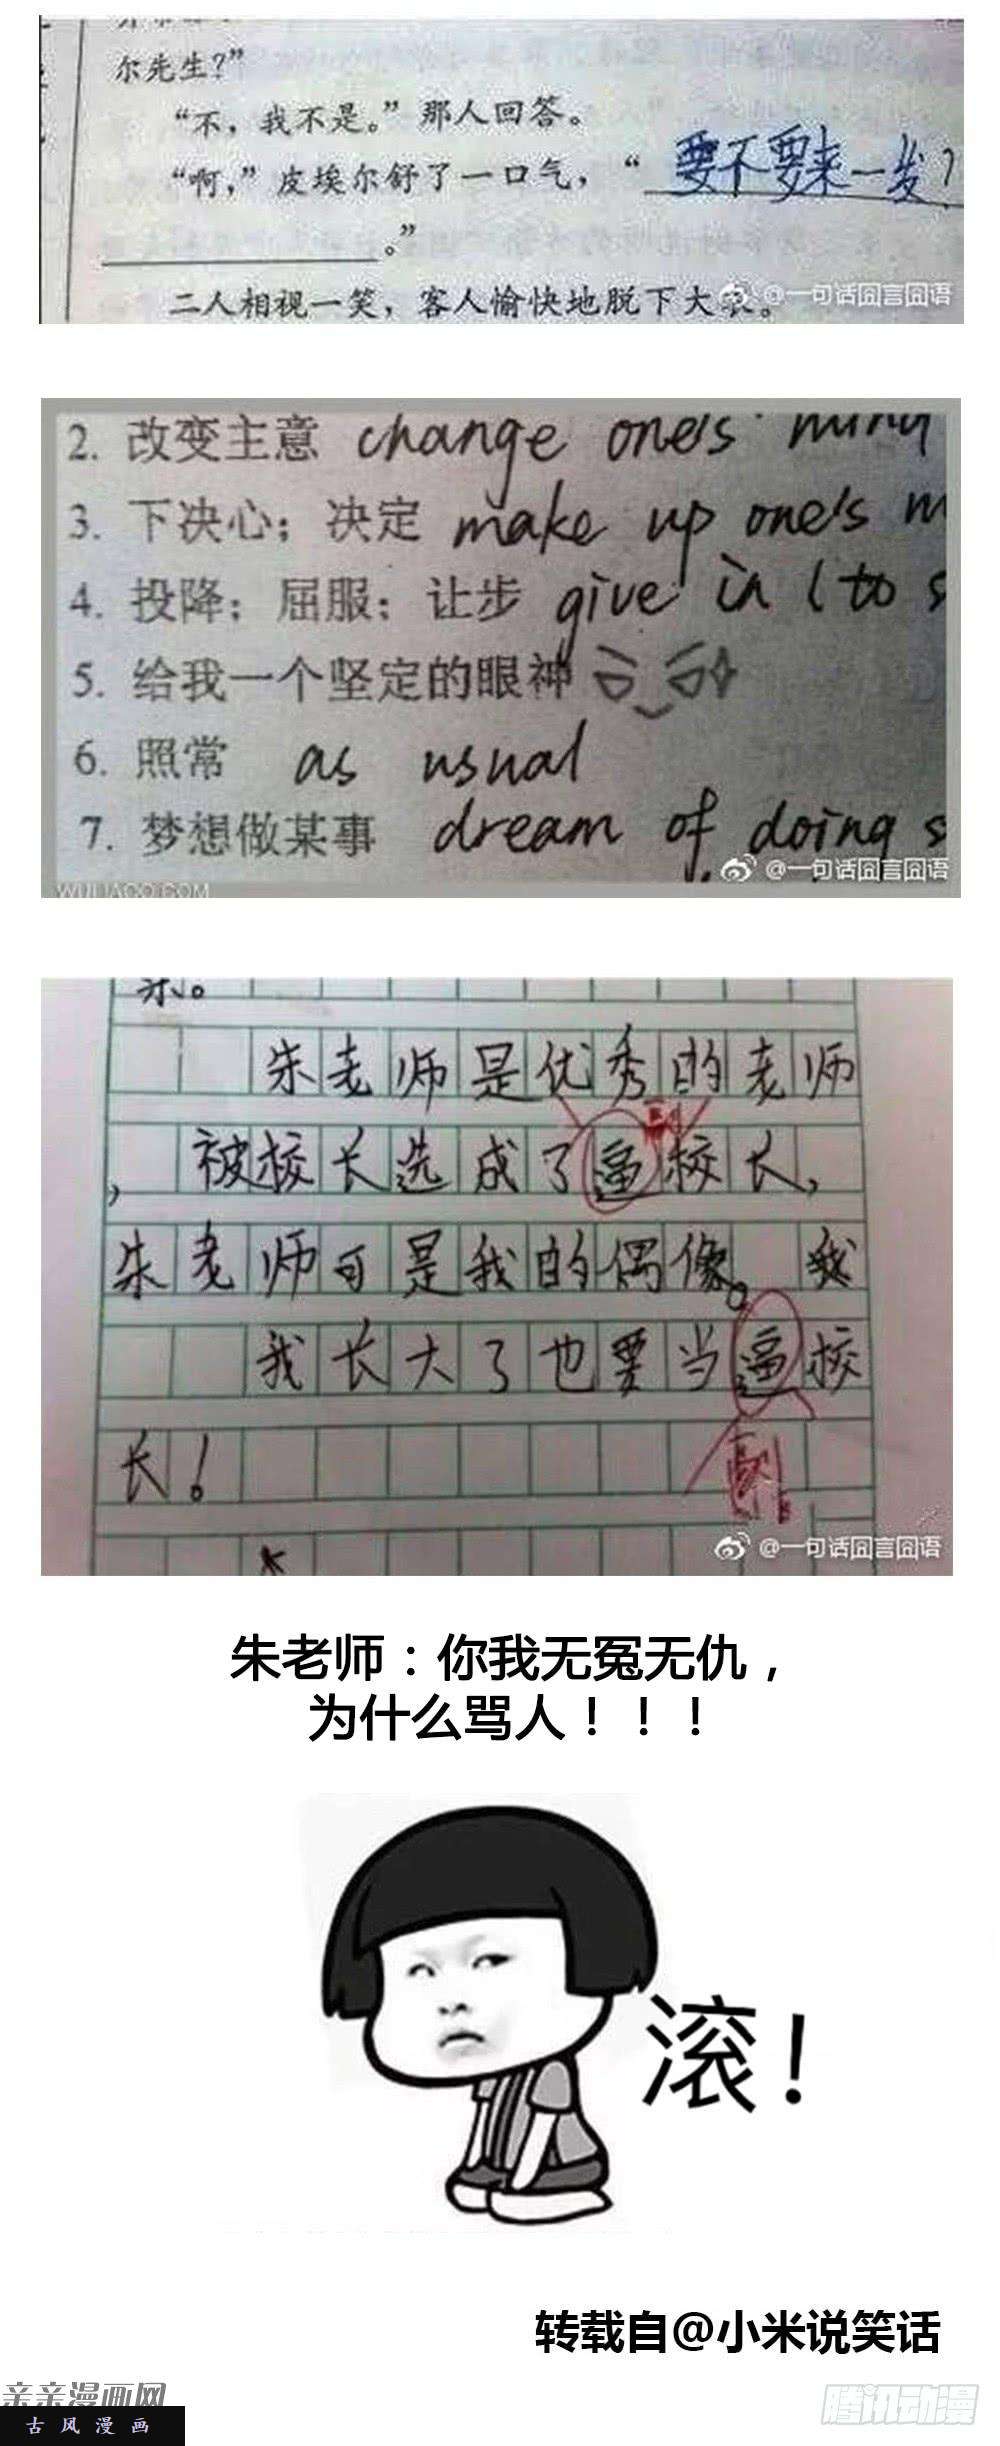 尔先生？”
“不，我不是。”那人回答。
“啊，”皮埃尔舒了一口气，“要不要来一发？
。”
二人相视一笑，客人愉快地脱下大衣。
@一句话囧言囧语
2. 改变主意 change one's mind
3. 下决心；决定 make up one's m
4. 投降；屈服；让步 give in (to s
5. 给我一个坚定的眼神
6. 照常 as usual
7. 梦想做某事 dream of doing s
@一句话囧言囧语
WULIAOO.COM
乐。
朱老师是优秀的老师
，被校长选成了逼校长，
副
朱老师可是我的偶像。我
我长大了也要当逼校
长！
副
@一句话囧言囧语
朱老师：你我无冤无仇，
为什么骂人！！！
滚！
转载自@小米说笑话
亲亲漫画网
古风漫画
腾讯动漫